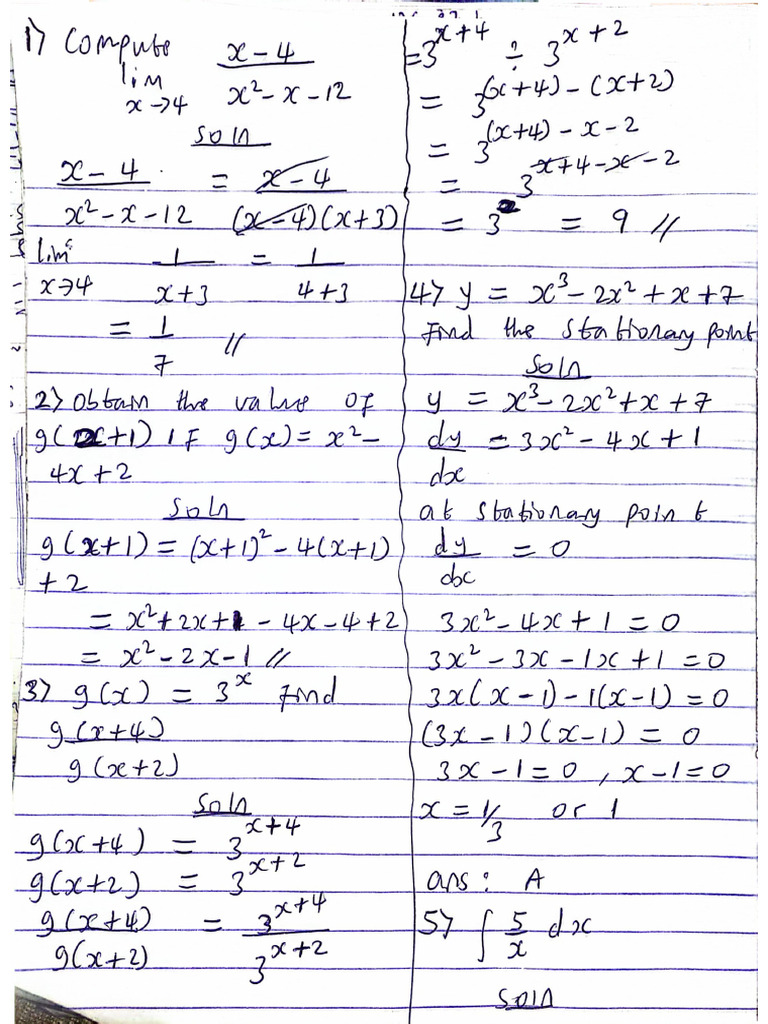 1) Compute
lim x→4 (x - 4)/(x² - x - 12)
soln
(x - 4)/(x² - x - 12) = (x - 4)/((x - 4)(x + 3))
lim x→4 1/(x + 3) = 1/(4 + 3)
= 1/7 //
2) Obtain the value of
g(x+1) IF g(x) = x² -
4x + 2
Soln
g(x+1) = (x+1)² - 4(x+1)
+ 2
= x² + 2x + 1 - 4x - 4 + 2
= x² - 2x - 1 //
3) g(x) = 3^x find
g(x+4)/g(x+2)
Soln
g(x+4) = 3^(x+4)
g(x+2) = 3^(x+2)
g(x+4)/g(x+2) = 3^(x+4)/3^(x+2)
= 3^(x+4) ÷ 3^(x+2)
= 3^((x+4) - (x+2))
= 3^((x+4) - x - 2)
= 3^(x+4-x-2)
= 3² = 9 //
4) y = x³ - 2x² + x + 7
Find the stationary point
Soln
y = x³ - 2x² + x + 7
dy/dx = 3x² - 4x + 1
at stationary point
dy/dx = 0
3x² - 4x + 1 = 0
3x² - 3x - 1x + 1 = 0
3x(x - 1) - 1(x - 1) = 0
(3x - 1)(x - 1) = 0
3x - 1 = 0, x - 1 = 0
x = 1/3 or 1
ans: A
5) ∫ 5/x dx
Soln